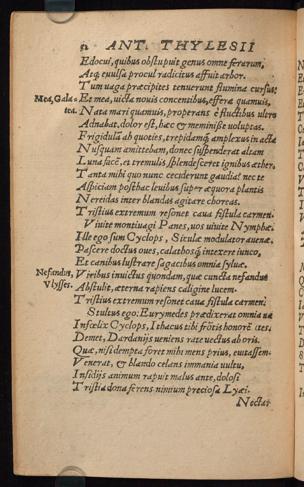 52 ANT. THYLESII
Edocui, quibus obstupuit genus omne ferarum,
Atq; euulsa procul radicitus affuit arbor.
Tum uaga præcipites tenuerunt flumina cursus:
Mea, Gala= Et mea, uicta nouis concentibus, efferæ quamuis,
tea. Nata mari quamuis, properans è fluctibus ultro
Adnabat, dolor est, hæc & meminisse voluptas.
Frigidulã ah quoties, trepidamq; amplexus in acta
Nusquam amittebam, donec suspenderat altam
Luna facẽ, et tremulis splendesceret ignibus æther.
Tanta mihi quo nunc ceciderunt gaudia! nec te
Aspiciam posthac leuibus super æquora plantis
Nereidas inter blandas agitare choreas.
Tristius extremum resonet caua fistula carmen.
Viuite montiuagi Panes, uos uiuite Nymphæ.
Ille ego sum Cyclops, Siculæ modulator auenæ,
Pascere doctus oues, calathosq; intexere iunco,
Et canibus lustrare sagacibus omnia syluæ.
Nefandus, Viribus inuictus quondam, quæ cuncta nefandus
Vlysses. Abstulit, æterna rapiens caligine lucem.
Tristius extremum resonet caua fistula carmen.
Stultus ego: Eurymedes prædixerat omnia
Infœlix Cyclops, Ithacus tibi frõtis honorẽ
Demet, Dardanijs ueniens rate uectus ab oris.
Quæ, nisi dempta foret mihi mens prius, euitassem.
Venerat, & blando celans immania uultu,
Insidijs animum rapuit malus ante, dolosi
Tristia dona ferens nimium preciosa Lyæi.
Nectar